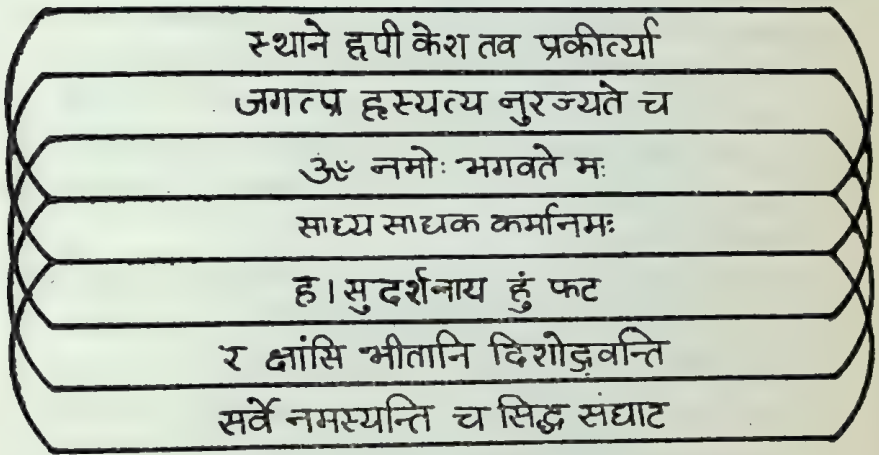 स्थाने हृपी केश तव प्रकीर्त्या
जगत्प्र हृस्यत्य नुरज्यते च
ॐ नमोः भगवते मः
साध्य साधक कर्मानमः
ह। सुदर्शनाय हुं फट
र क्षांसि भीतानि दिशोद्रवन्ति
सर्वे नमस्यन्ति च सिद्ध संघाट